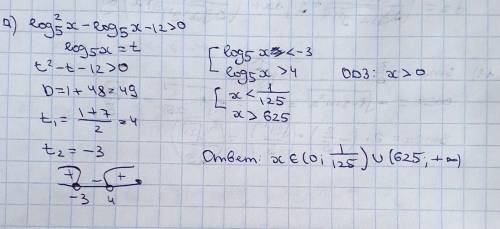 а) log₅²x - log₅x - 12 > 0
log₅x = t
t² - t - 12 > 0
D = 1 + 48 = 49
t₁ = (1+7)/2 = 4
t₂ = -3
+ - +
-3 4
[ log₅x < -3
log₅x > 4
ОДЗ: x > 0
[ x < 1/125
x > 625
Ответ: x ∈ (0; 1/125) ∪ (625; +∞)